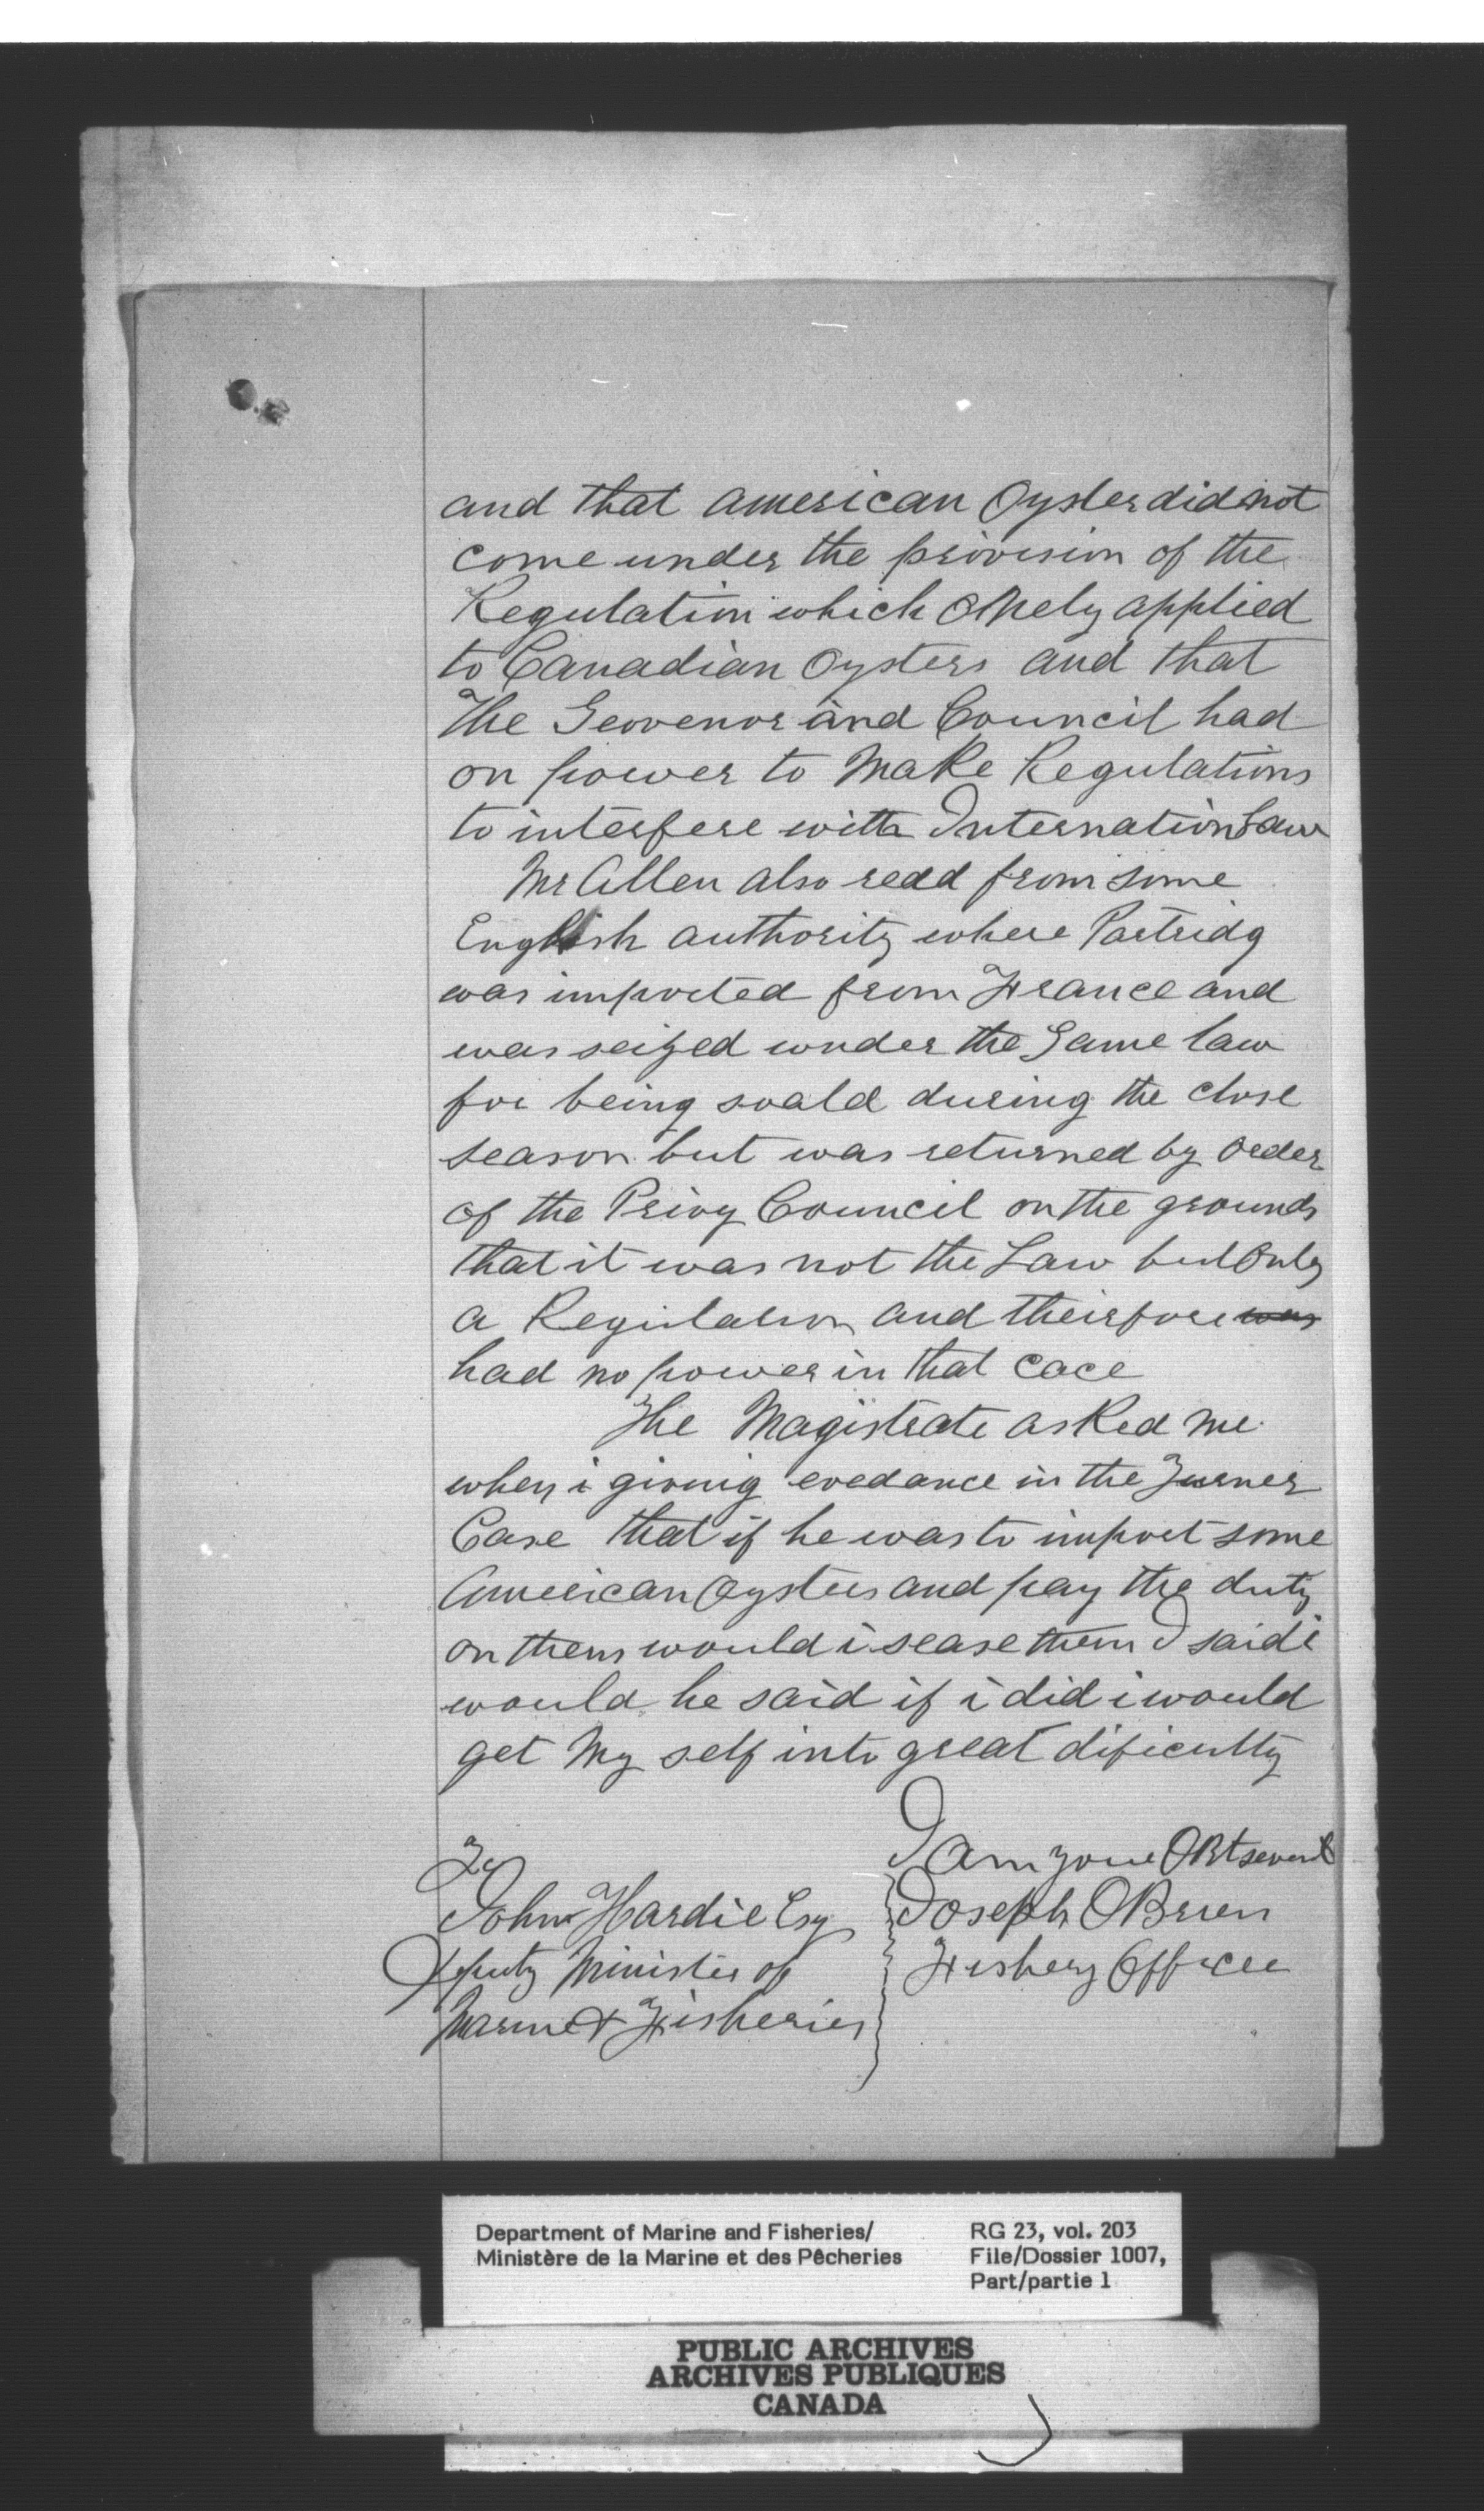 and that american Oyster did not
come under the provision of the
Regulation which Onely applied
to Canadian Oysters and that
The Geovenor and Council had
on power to Make Regulations
to interfere with Internation Law
Mr Allen also read from some
English authority where Partridg
was imported from France and
was seized under the Game law
for being soald during the close
season but was returned by Order
of the Privy Council on the grounds
that it was not the Law but Only
a Regulation and theirfore was
had no power in that cace
The Magistrate asked me
when i giving evedance in the Turner
Case that if he was to import some
American Oysters and pay the duty
on them would i sease them I said i
would he said if i did i would
get My self into great dificulty
I am your OBt servent
Joseph OBrien
Fishery Officer
To
John Hardie Esq
Deputy Minister of
Marine & Fisheries
Department of Marine and Fisheries/
Ministère de la Marine et des Pêcheries
RG 23, vol. 203
File/Dossier 1007,
Part/partie 1
PUBLIC ARCHIVES
ARCHIVES PUBLIQUES
CANADA